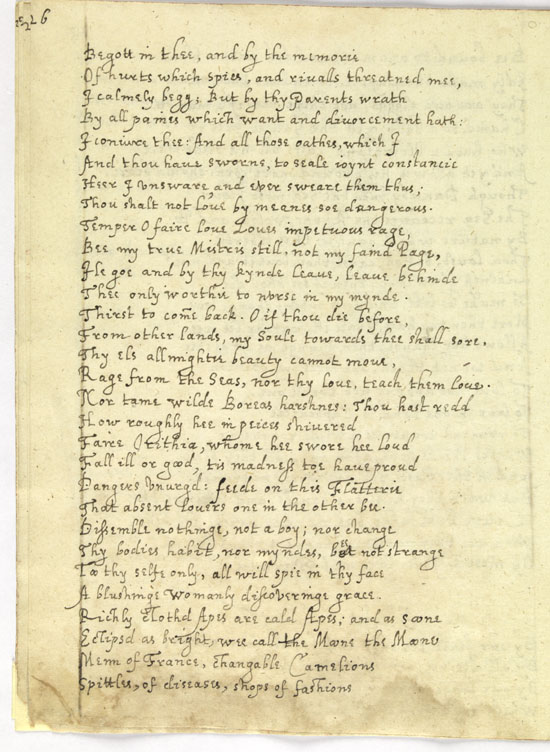 26
Begott in thee, and by the memorie
Of hurts which spies, and rivalls threatned mee,
I calmely begg; But by thy Parents wrath
By all paines which want and divorcement hath:
I coniure thee: And all those oathes, which I
And thou have sworne, to seale ioynt constancie
Heer I vnsware, and ever sweare them thus;
Thou shalt not love by meanes soe dangerous.
Temper O faire love Loves impetuous rage,
Bee my true Mistris still, not my faind Page,
Ile goe and by thy kynde Leave, leave behinde
Thee only worthie to nvrse in my mynde.
Thirst to come back. O if thou die before,
From other lands, my Soule towards thee shall sore,
Thy els allmightie beauty cannot move,
Rage from the Seas, nor thy love, teach them love.
Nor tame wilde Boreas harshnes: Thou hast redd
How roughly hee in peices shivered
Faire Orithia, whome hee swore hee lovd
Fall ill or good, tis madness toe have provd
Dangers vnurgd: feede on this Flatterie
That absent Lovers one in the other bee.
Dissemble nothinge, not a boy; nor change
Thy bodies habit, nor myndes, bee not strange
To thy selfe only, all will spie in thy face
A blushinge womanly discoveringe grace.
Richly clothd Apes are cald Apes; and as soone
Eclipsd as bright, wee call the Moone the Moone
Menn of France, changable Camelions
Spittles, of diseases, shops of fashions